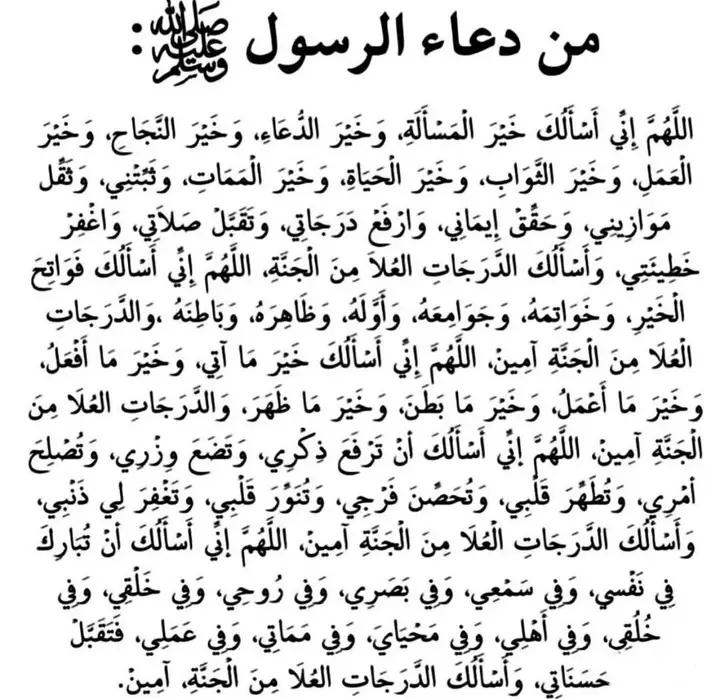 من دعاء الرسول ﷺ:
اللَّهُمَّ إِنِّي أَسْأَلُكَ خَيْرَ الْمَسْأَلَةِ، وَخَيْرَ الدُّعَاءِ، وَخَيْرَ النَّجَاحِ، وَخَيْرَ
الْعَمَلِ، وَخَيْرَ الثَّوَابِ، وَخَيْرَ الْحَيَاةِ، وَخَيْرَ الْمَمَاتِ، وَثَبِّتْنِي، وَثَقِّل
مَوَازِينِي، وَحَقِّقْ إِيمَانِي، وَارْفَعْ دَرَجَاتِي، وَتَقَبَّلْ صَلاَتِي، وَاغْفِرْ
خَطِيئَتِي، وَأَسْأَلُكَ الدَّرَجَاتِ العُلاَ مِنَ الْجَنَّةِ، اللَّهُمَّ إِنِّي أَسْأَلُكَ فَوَاتِحَ
الْخَيْرِ، وَخَوَاتِمَهُ، وَجَوَامِعَهُ، وَأَوَّلَهُ، وَظَاهِرَهُ، وَبَاطِنَهُ ،وَالدَّرَجَاتِ
الْعُلَا مِنَ الْجَنَّةِ آمِينْ، اللَّهُمَّ إِنِّي أَسْأَلُكَ خَيْرَ مَا آتِي، وَخَيْرَ مَا أَفْعَلُ،
وَخَيْرَ مَا أَعْمَلُ، وَخَيْرَ مَا بَطَنَ، وَخَيْرَ مَا ظَهَرَ، وَالدَّرَجَاتِ العُلَا مِنَ
الْجَنَّةِ آمِينْ، اللَّهُمَّ إنِّي أَسْأَلُكَ أنْ تَرْفَعَ ذِكْرِي، وَتَضَعَ وِزْرِي، وَتُصْلِحَ
أمْرِي، وَتُطَهِّرَ قَلْبِي، وَتُحَصِّنَ فَرْجِي، وَتُنَوِّرَ قَلْبِي، وَتَغْفِرَ لِي ذَنْبِي،
وَأَسْأَلُكَ الدَّرَجَاتِ الْعُلَا مِنَ الْجَنَّةِ آمِينْ، اللَّهُمَّ إنِّي أَسْأَلُكَ أنْ تُبَارِكَ
فِي نَفْسِي، وَفِي سَمْعِي، وَفِي بَصَرِي، وَفِي رُوحِي، وَفِي خَلْقِي، وَفِي
خُلُقِى، وَفِي أَهْلِي، وَفِي مَحْيَايَ، وَفِي مَمَاتِي، وَفِي عَمَلِي، فَتَقَبَّلْ
حَسَنَاتِي، وَأَسْأَلُكَ الدَّرَجَاتِ العُلَا مِنَ الْجَنَّةِ، آمِينْ.